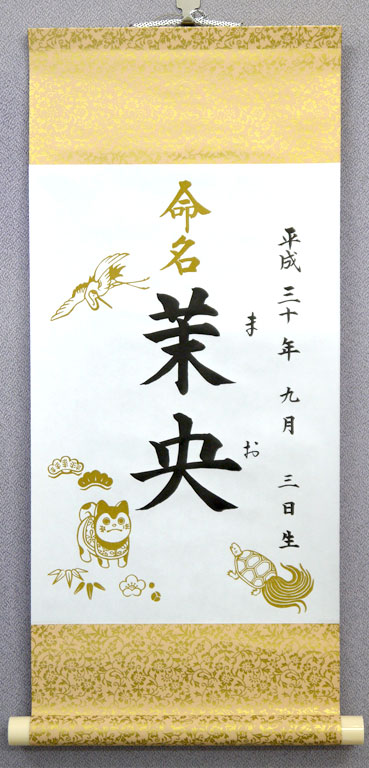 平成三十年九月三日生
命名
茉央
まお